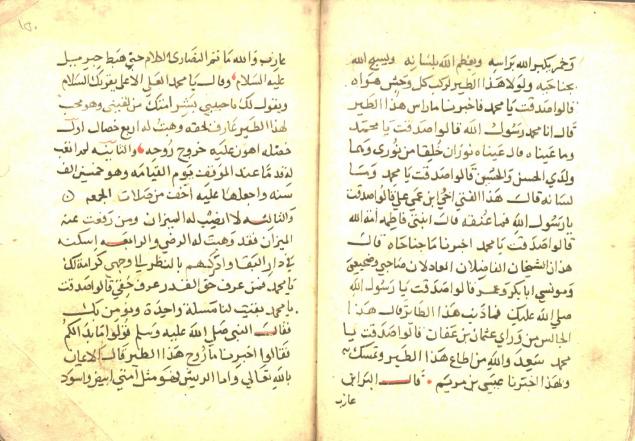 وخمر يكبر الله براسه ويعظم الله بلسانه ويسبح الله
بجناحيه ولولا هذا الطير لركب كل وحش هواه
قالوا صدقت يا محمد فاخبرنا ما راس هذا الطير
قال انا محمد رسول الله قالوا صدقت يا محمد
وما عيناه قال عيناه نوران خلقا من نوري وهما
ولدي الحسن والحسين قالوا صدقت يا محمد وما
لسانه قال هذا الفتى اخي ابن عمي علي قالوا صدقت
يا رسول الله فما عنقه قال ابنتي فاطمه امة الله
قالوا صدقت يا محمد اخبرنا ما جناحاه قال
هذان الشيخان الفاضلان العادلان صاحبي وضجيعي
ومونسي ابا بكر وعمر قالوا صدقت يا رسول الله
صلى الله عليك فما ذنب هذا الطاير قال هذا
الجالس من وراي عثمان بن عفان قالوا صدقت يا
محمد سعيد والله من اطاع هذا الطير وتمسك به
ولهذا اخبرنا عيسى بن مريم قال البرا بن
عازب
١٥٠
عازب والله ما تم النصارى الكلام حتى هبط جبريل
عليه السلام وقال يا محمد العلي الاعلى يقريك السلام
ويقول لك يا حبيبي بشر امتك من لقيني وهو محب
لهذا الطير عارف لحقه وهبت له اربع خصال اول
خصله اهون عليه خروج روحه والثانيه لم اتعب
له قدما عند الموقف يوم القيامه وهو خمسين الف
سنه واجعلها عليه اخف من صلات الجمعه
والثالثه لا انصب له الميزان ومن رفعت عنه
الميزان فقد وهبت له الرضى والرابعه اسكنه
في دار البقا واكرمهم بالنظر الى وجهي كرامة لك
يا محمد فمن عرف حق القدر عرف حقي قالوا صدقت
يا محمد بقيت لنا مسلة واحدة ونومن بك
فقال النبي صلى الله عليه وسلم قولوا ما بدا لكم
فقالوا اخبرنا ما روح هذا الطير قال الايمان
بالله تعالى واما الريش فهو مثل امتي ابيض واسود